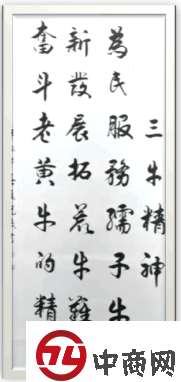 三牛精神
为民服務孺子牛
新發展拓荒牛難
奮斗老黄牛的精
中商网